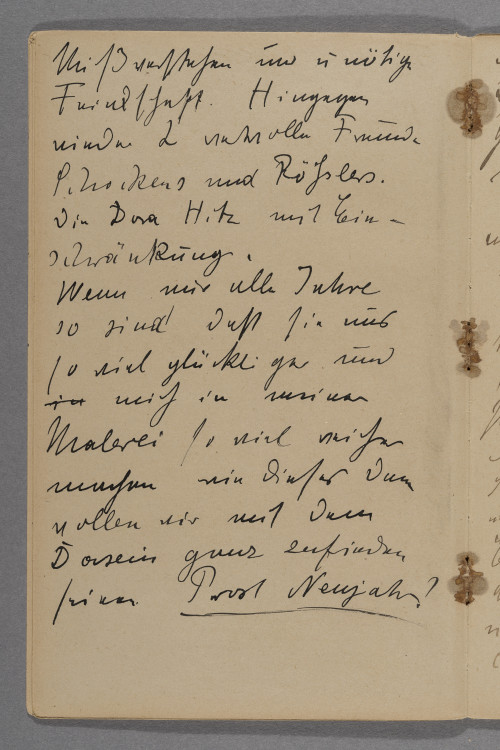 Mißverstehen und unnötige
Feindschaft. Hingegen
wieder 2 wertvolle Freunde
Schockens und Rößlers.
Die Dora Hitz mit Ein-
schränkung.
Wenn nur alle Jahre
so sind daß sie uns
so viel glückliger und
in mich in meiner
Malerei so viel reicher
machen wie dieses dann
wollen wir mit dem
Dasein ganz zufrieden
seien. Prost Neujahr!